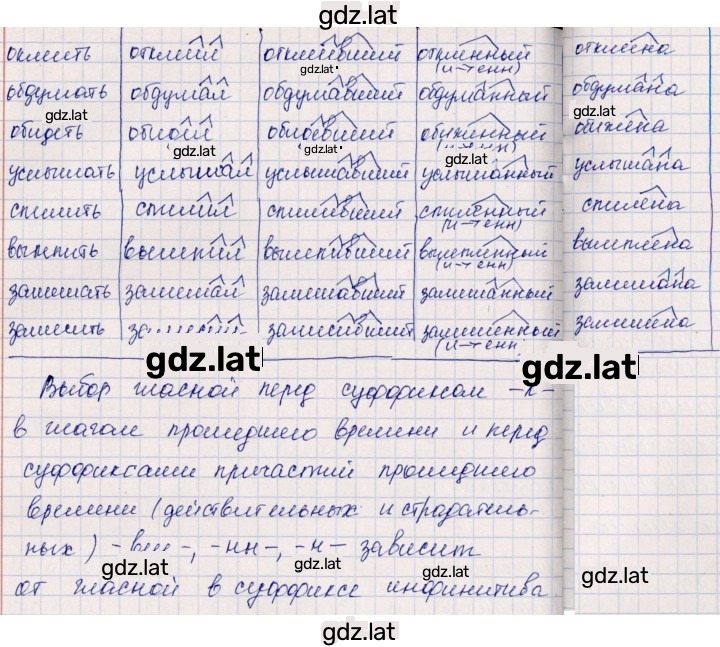 gdz.lat
оклеить отклеил отклеивший отклеенный отклеена
gdz.lat (и→енн)
обдумать обдумал обдумавший обдуманный обдумана
gdz.lat gdz.lat
обидеть обидел обидевший обиженный обижена
gdz.lat gdz.lat (и→енн)
услышать услышал услышавший услышанный услышана
gdz.lat
спилить спилил спиливший спиленный спилена
(и→енн)
вылепить вылепил вылепивший вылепленный вылеплена
(и→енн)
замешать замешал замешавший замешанный замешана
замесить замесивший замешенный замешена
(и→енн)
gdz.lat gdz.lat
Выбор гласной перед суффиксом -л-
в глаголе прошедшего времени и перед
суффиксами причастий прошедшего
времени (действительных и страдатель-
ных) -вш-, -нн-, -н- зависит
gdz.lat gdz.lat gdz.lat gdz.lat
от гласной в суффиксе инфинитива.
gdz.lat